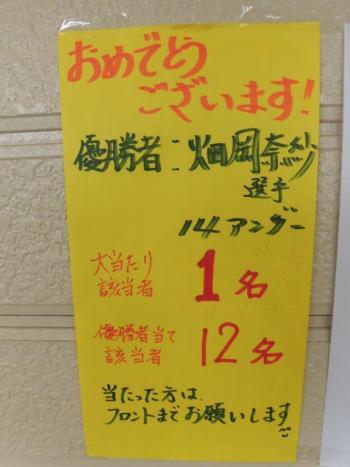 おめでとう
ございます!
優勝者:畑岡奈紗
選手
14アンダー
大当たり
該当者
1名
優勝者当て
該当者
12名
当たった方は、
フロントまでお願いします